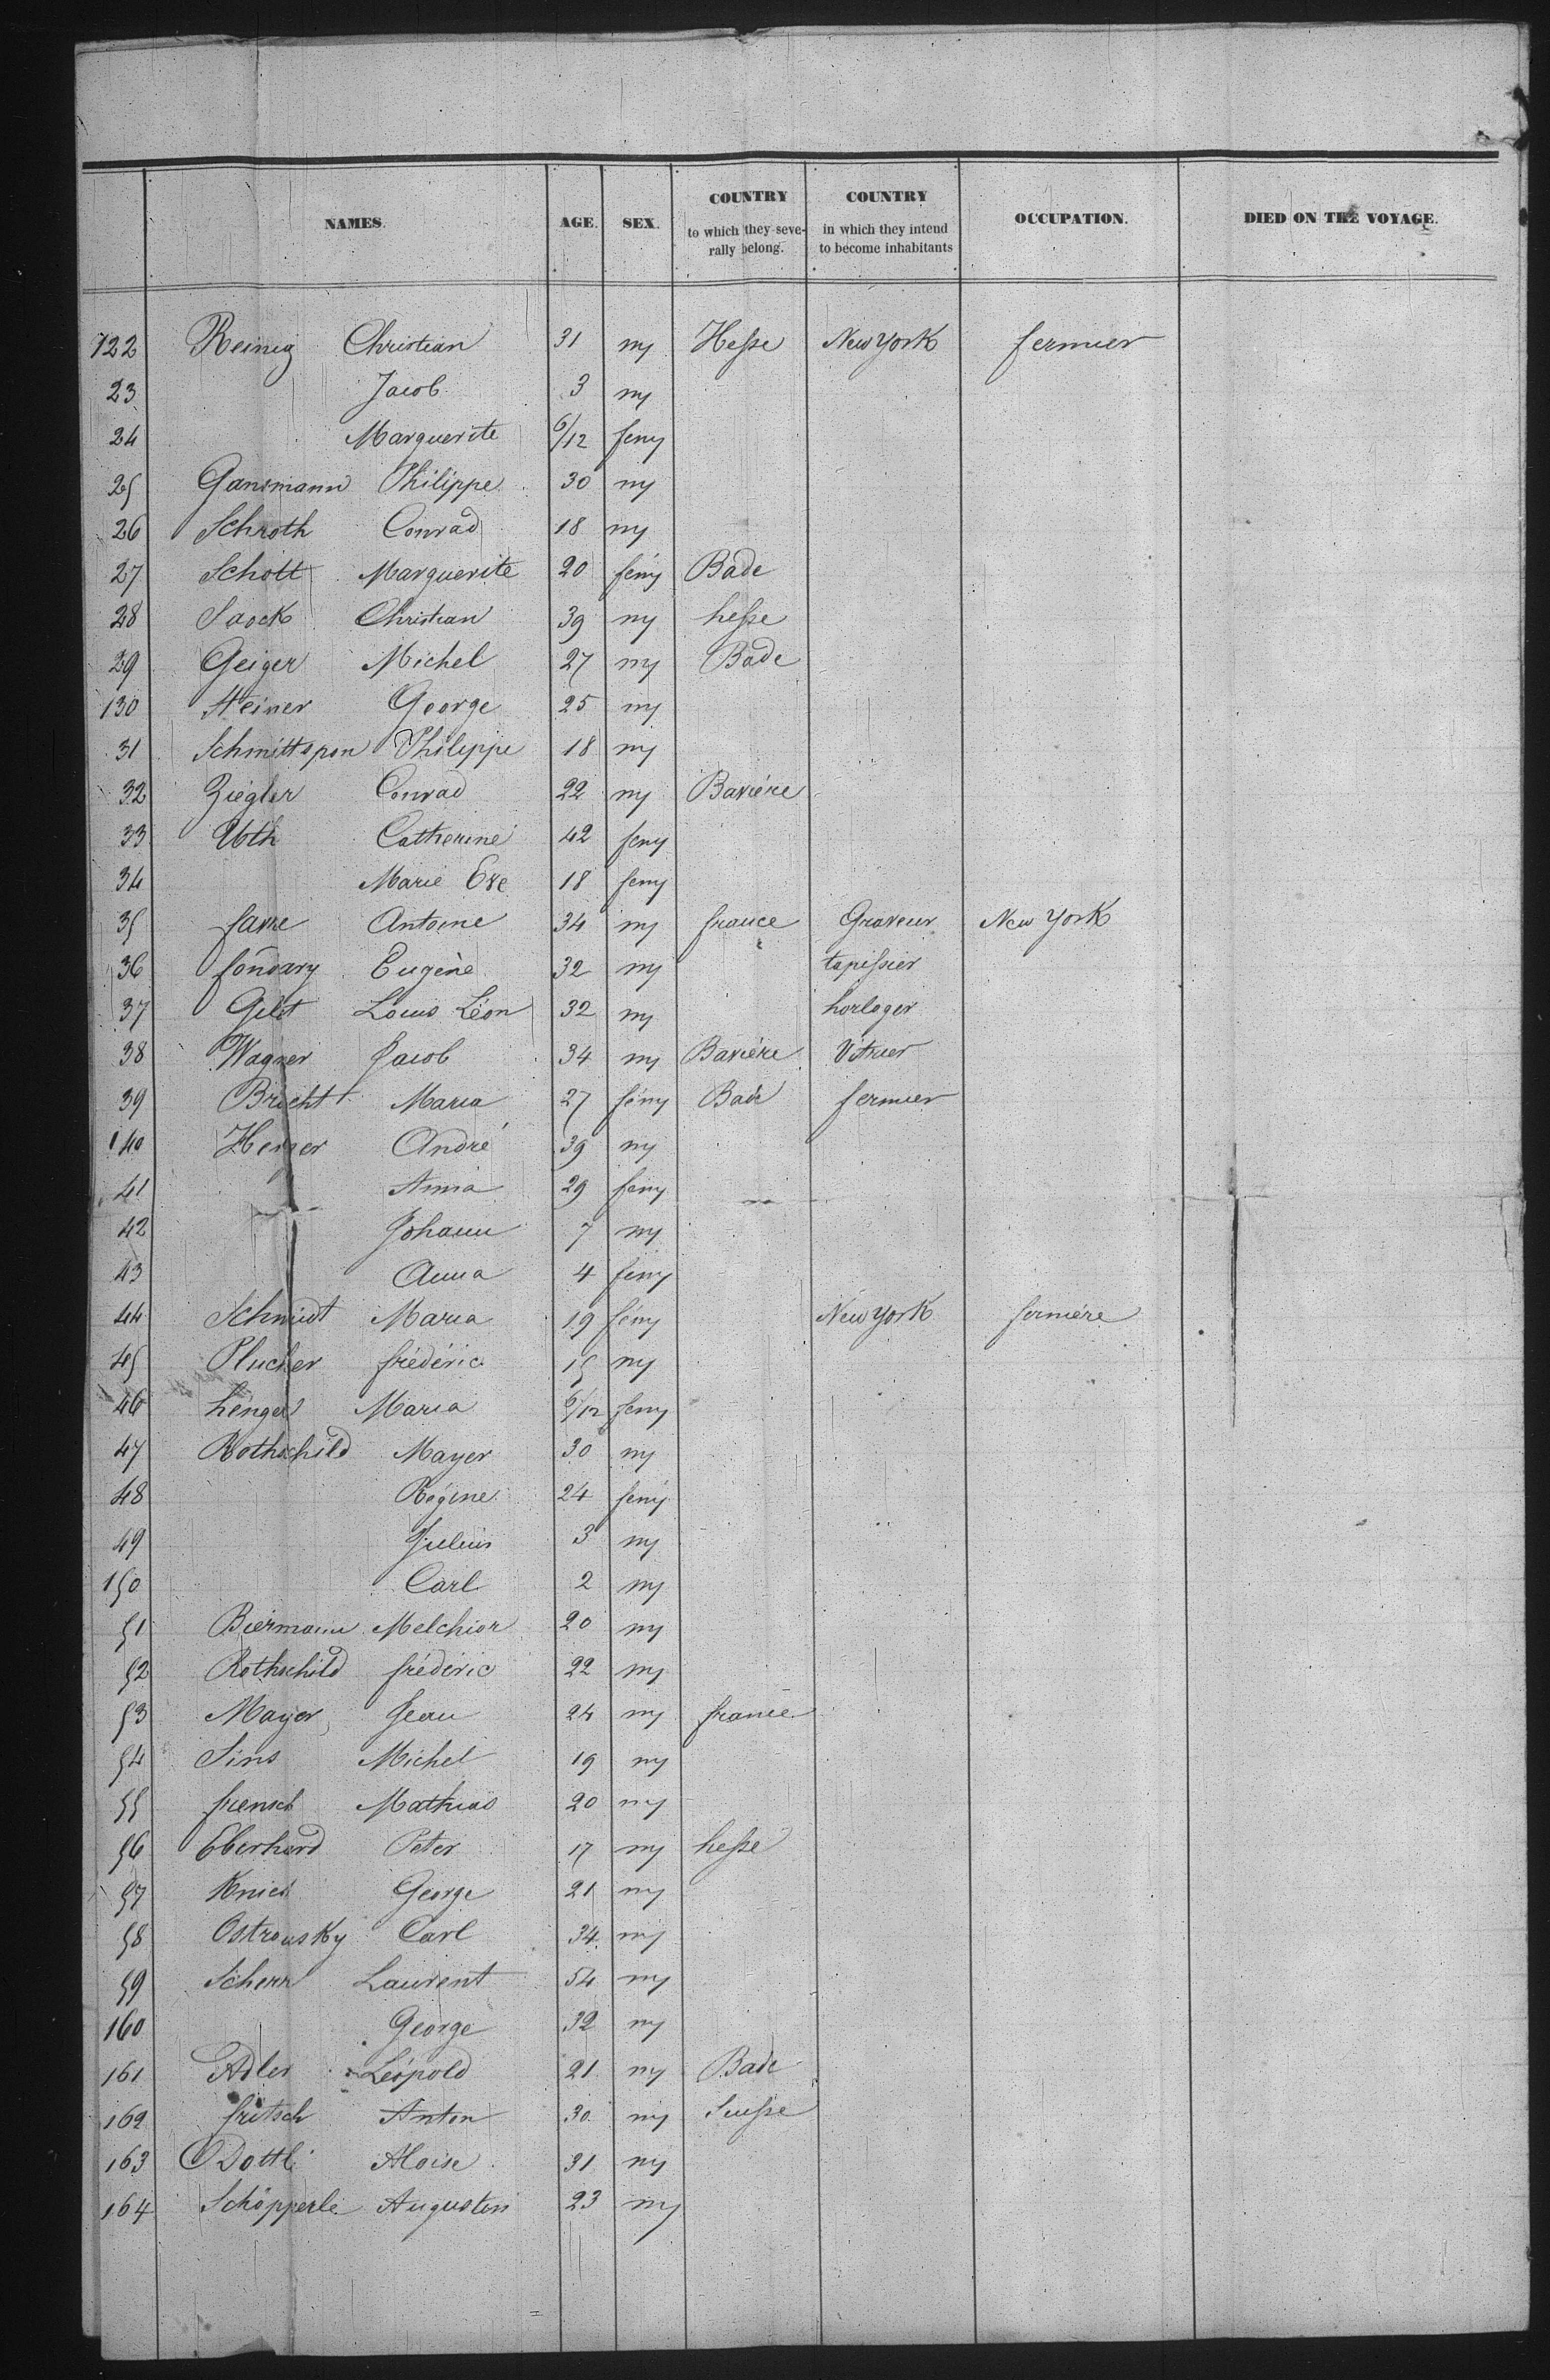 NAMES. AGE. SEX. COUNTRY to which they seve- rally belong. COUNTRY in which they intend to become inhabitants OCCUPATION. DIED ON THE VOYAGE.
122 Reinig Christian 31 m Hesse New York fermier
23 Jacob 3 m
24 Marguerite 6/12 fem
25 Gansmann Philippe 30 m
26 Schroth Conrad 18 m
27 Schott Marguerite 20 fem Bade
28 Saock Christian 39 m hesse
29 Geiger Michel 27 m Bade
130 Steiner George 25 m
31 Philippe 18 m
32 Ziegler Conrad 22 m Bavière
33 Uth Catherine 42 fem
34 Marie Eve 18 fem
35 favre Antoine 34 m france Graveur New York
36 Eugène 32 m tapissier
37 Louis Léon 32 m horloger
38 Wagner Jacob 34 m Bavière Vitrier
39 Brecht Maria 27 fem Bade fermier
140 André 39 m
41 Anna 29 fem
42 Johann 7 m
43 Anna 4 fem
44 Schmidt Maria 19 fem New York fermière
45 Plucker frédéric 15 m
46 Maria 6/12 fem
47 Rothschild Mayer 30 m
48 Régine 24 fem
49 Julius 3 m
150 Carl 2 m
51 Biermann Melchior 20 m
52 Rothschild frédéric 22 m
53 Mayer Jean 24 m france
54 Sins Michel 19 m
55 Mathias 20 m
56 Eberhard Peter 17 m hesse
57 George 21 m
58 Ostrousky Carl 34 m
59 Scherr Laurent 54 m
160 George 32 m
161 Adler Léopold 21 m Bade
162 fritsch Anton 30 m Suisse
163 Dottli Aloise 31 m
164 Schöpperle Augustin 23 m